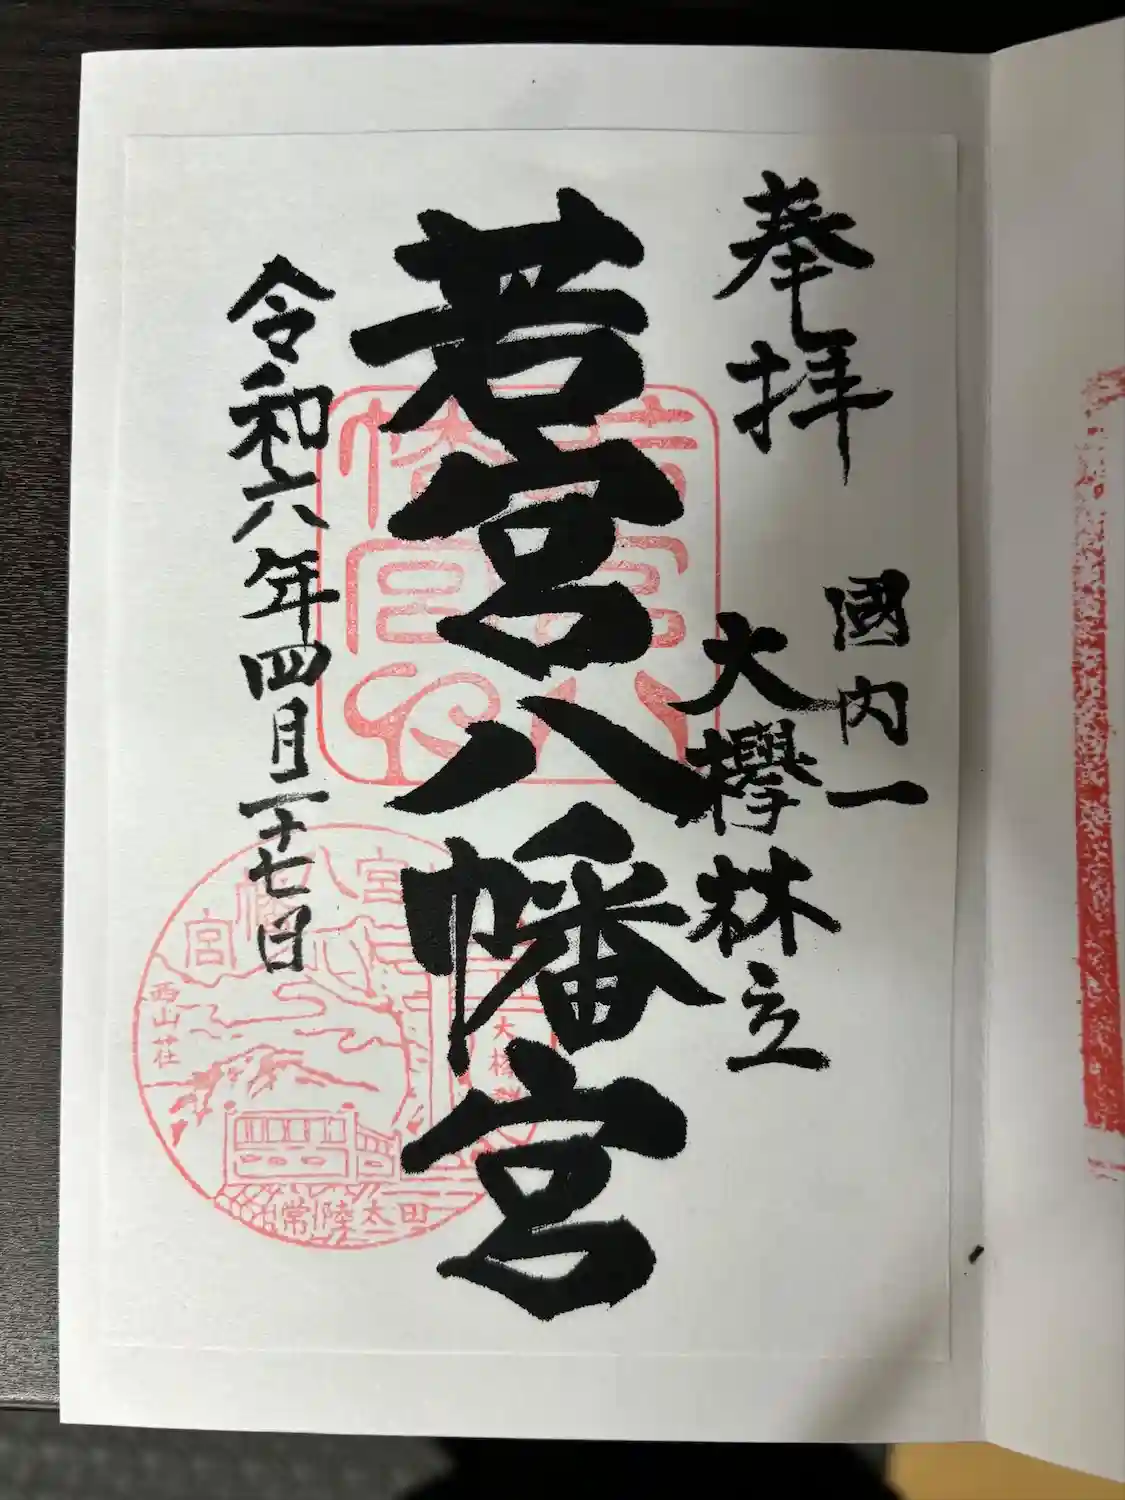 奉拝
國内一
大欅林立
若宮八幡宮
令和六年四月二十七日
八幡宮
宮
西山荘
常陸太田